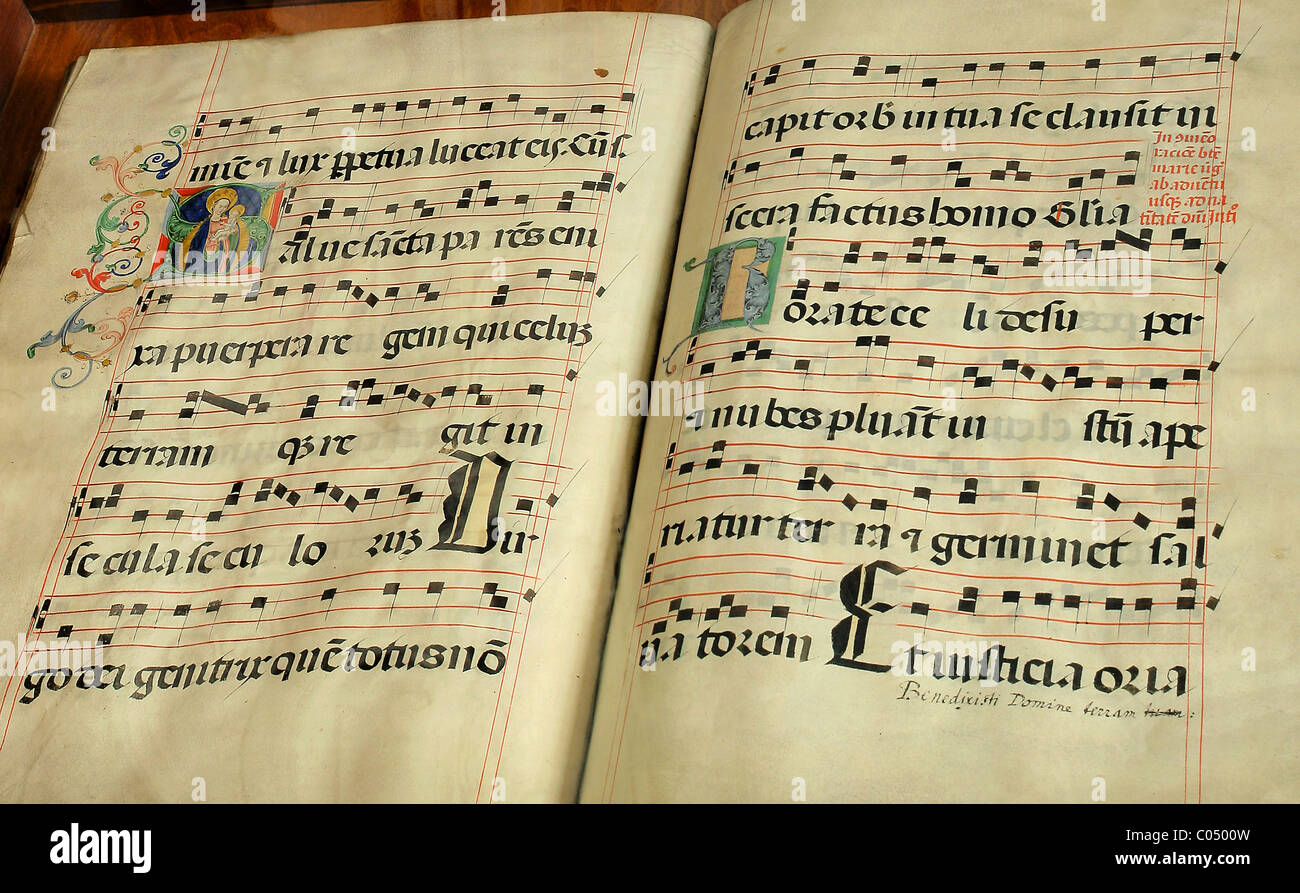 mĩe ⁊ lux ꝑpetua luceat eis. Cũs.
Salue sãcta parẽs eni
xa puerpera regem qui celuꝫ
terram qꝫ regit in
secula seculoruꝫ Uir
go dei genitrix quẽ totus nõ
capit orb̃ in tua se clausit in
scera factus homo Glia
marie
Rorate celi desuper
⁊ nubes pluãt iustũ ape
riatur terra ⁊ germinet sal
uatorem Et iusticia oria
Benedixisti Domine terram tuam:
alamy
Image ID: C0500W
www.alamy.com